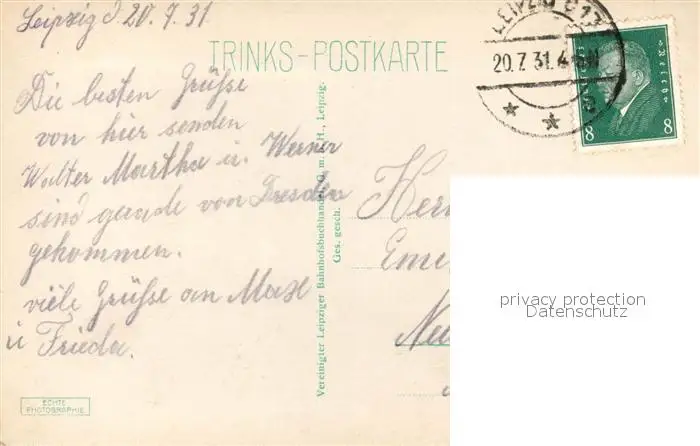 Leipzig d. 20.7.31.
TRINKS-POSTKARTE
Die besten Grüße
von hier senden
Walter Martha u. Werner
sind gerade von Dresden
gekommen.
viele Grüße an Max
u Frieda.
ECHTE
PHOTOGRAPHIE
Vereinigter Leipziger Bahnhofsbuchhandel G. m. b. H., Leipzig.
Ges. gesch.
LEIPZIG C
20.7.31.
8 8
Her
Eme
Neu
privacy protection
Datenschutz